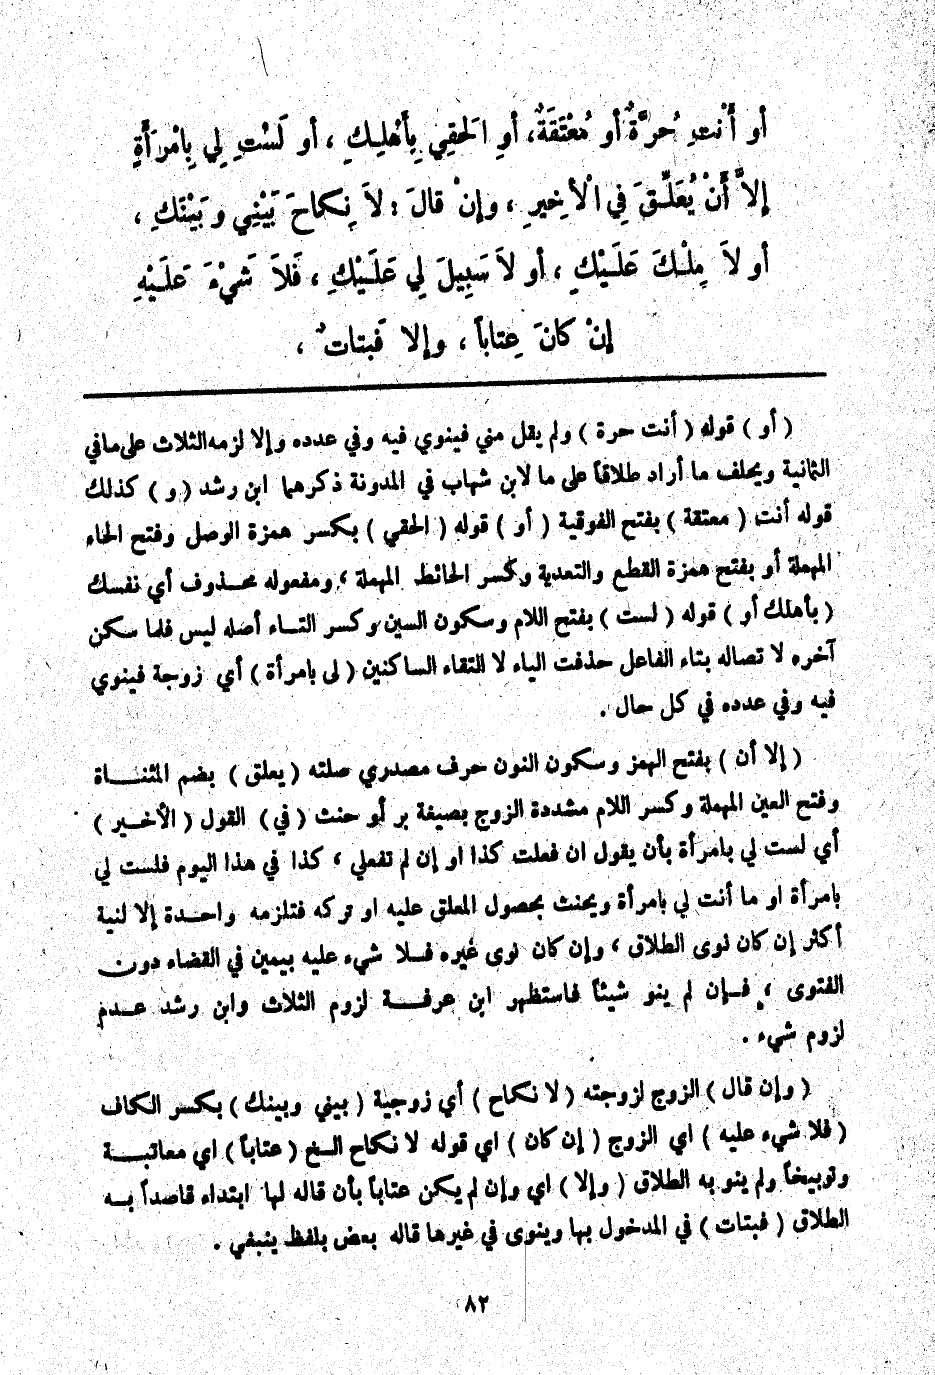 أو أَنْتِ حُرَّةٌ أو مُعْتَقَةٌ، أوِ الْحَقِي بِأَهْلِـكِ ، أو لَسْتِ لِي بِامْرَأَةٍ
إلاَّ أَنْ يُعَلِّـقَ فِي الْأَخِيرِ ، وإنْ قالَ : لاَ نِكاحَ بَيْنِي وبَيْنَكِ ،
أو لاَ مِلْـكَ عَلَـيْكِ ، أو لاَ سَبِيلَ لِي عَلَـيْكِ ، فَلاَ شَيْءَ عَلَـيْهِ
إنْ كانَ عِتاباً ، وإلا فَبتاتٌ ،
( أو ) قوله ( أنت حرة ) ولم يقل مني فينوي فيه وفي عدده وإلا لزمه الثلاث على مافي
الثانية ويحلف ما أراد طلاقاً على ما لابن شهاب في المدونة ذكرهما ابن رشد ( و ) كذلك
قوله أنت ( معتقة ) بفتح الفوقية ( أو ) قوله ( الحقي ) بكسر همزة الوصل وفتح الحاء
المهملة أو بفتح همزة القطع والتعدية وكسر الحائط المهملة ، ومفعوله محـذوف أي نفسك
( بأهلك أو ) قوله ( لست ) بفتح اللام وسكون السين وكسر التـاء أصله ليس فلما سكن
آخره لا تصاله بتاء الفاعل حذفت الياء لا التقاء الساكنين ( لى بامرأة ) أي زوجة فينوي
فيه وفي عدده في كل حال .
( إلا أن ) بفتح الهمز وسكون النون حرف مصدري صلته ( يعلق ) بضم المثنـاة
وفتح العين المهملة وكسر اللام مشددة الزوج بصيغة بر أو حنث ( في ) القول ( الأخـير )
أي لست لي بامرأة بأن يقول ان فعلت كذا او إن لم تفعلي ، كذا في هذا اليوم فلست لي
بامرأة او ما أنت لي بامرأة ويحنث بحصول المعلق عليه او تركه فتلزمه واحـدة إلا لنية
أكثر إن كان نوى الطلاق ، وإن كان نوى غيره فـلا شيء عليه بيمين في القضاء دون
الفتوى ، فـإن لم ينو شيئاً فاستظهر ابن عرفـة لزوم الثلاث وابن رشد عـدم
لزوم شيء .
( وإن قال ) الزوج لزوجته ( لا نكاح ) أي زوجية ( بيني وبينك ) بكسر الكاف
( فلا شيء عليه ) اي الزوج ( إن كان ) اي قوله لا نكاح الـخ ( عتاباً ) اي معاتبـة
وتوبيخاً ولم ينو به الطلاق ( وإلا ) اي وإن لم يكن عتاباً بأن قاله لها ابتداء قاصداً بـه
الطلاق ( فبتات ) في المدخول بها وينوى في غيرها قاله بعض بلفظ ينبغي .
٨٢